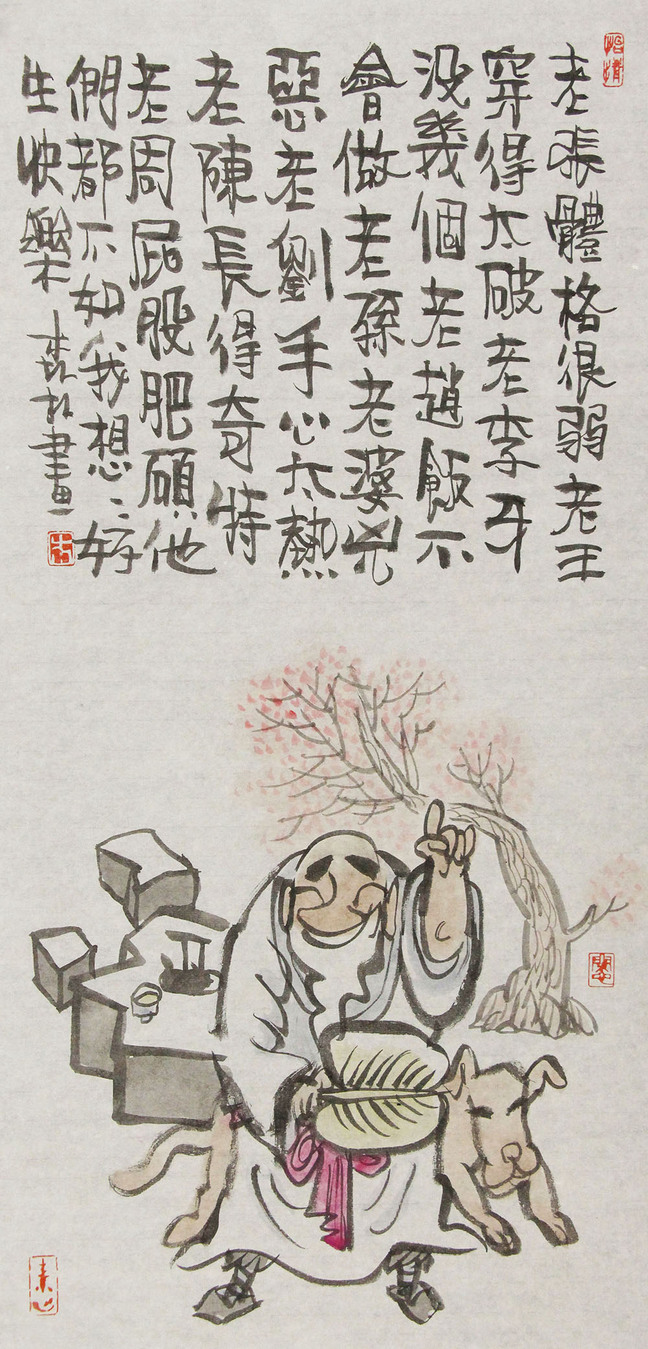 老張體格很弱老王
穿得太破老李牙
没幾個老趙飯不
會做老孫老婆兇
惡老劉手心太熱
老陳長得奇特
老周屁股肥碩他
們都不如我想想好
生快樂
畫
素心